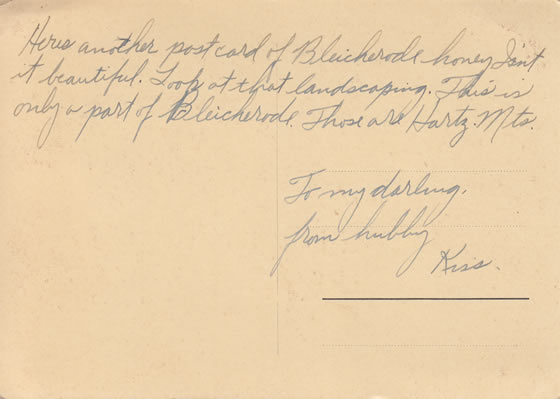 Heres another postcard of Bleicherode honey Isn't
it beautiful. Look at that landscaping. This is
only a part of Bleicherode. Those are Hartz. Mts.
To my darling.
from hubby
Kiss.